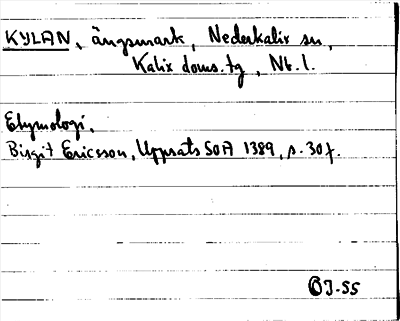 KYLAN, ängsmark, Nederkalix sn,
Kalix doms.tg, Nb.l.
Etymologi.
Birgit Ericsson, Uppsats SOA 1389, s. 30f.
OJ-55